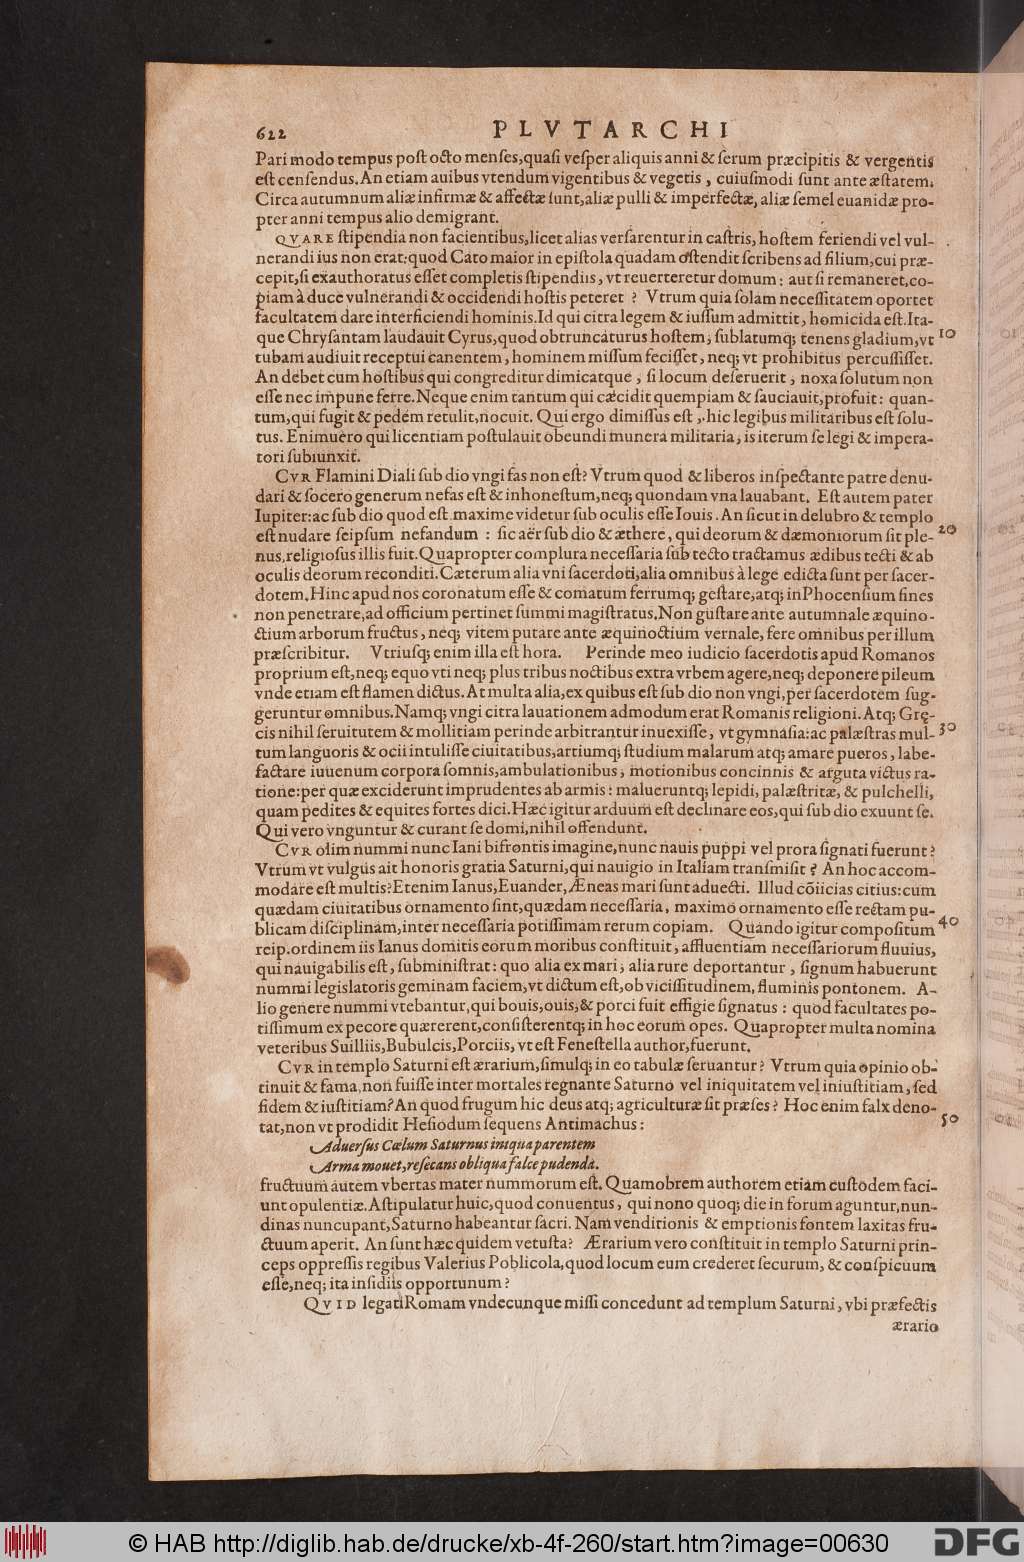 622 PLVTARCHI
Pari modo tempus post octo menses,quasi vesper aliquis anni & serum præcipitis & vergentis
est censendus.An etiam auibus vtendum vigentibus & vegetis, cuiusmodi sunt ante æstatem.
Circa autumnum aliæ infirmæ & affectæ sunt,aliæ pulli & imperfectæ, aliæ semel euanidæ pro-
pter anni tempus alio demigrant.
QVARE stipendia non facientibus,licet alias versarentur in castris, hostem feriendi vel vul-
nerandi ius non erat:quod Cato maior in epistola quadam ostendit scribens ad filium,cui præ-
cepit,si exauthoratus esset completis stipendiis, vt reuerteretur domum: aut si remaneret,co-
piam à duce vulnerandi & occidendi hostis peteret? Vtrum quia solam necessitatem oportet
facultatem dare interficiendi hominis.Id qui citra legem & iussum admittit, homicida est.Ita-
que Chrysantam laudauit Cyrus,quod obtruncaturus hostem, sublatumq; tenens gladium,vt 10
tubam audiuit receptui canentem, hominem missum fecisset, neq; vt prohibitus percussisset.
An debet cum hostibus qui congreditur dimicatque, si locum deseruerit, noxa solutum non
esse nec impune ferre.Neque enim tantum qui cæcidit quempiam & sauciauit,profuit: quan-
tum,qui fugit & pedem retulit,nocuit. Qui ergo dimissus est, hic legibus militaribus est solu-
tus. Enimuero qui licentiam postulauit obeundi munera militaria, is iterum se legi & impera-
tori subiunxit.
CVR Flamini Diali sub dio vngi fas non est? Vtrum quod & liberos inspectante patre denu-
dari & socero generum nefas est & inhonestum,neq; quondam vna lauabant. Est autem pater
Iupiter:ac sub dio quod est maxime videtur sub oculis esse Iouis. An sicut in delubro & templo
est nudare seipsum nefandum: sic aër sub dio & æthere, qui deorum & dæmoniorum sit ple- 20
nus,religiosus illis fuit.Quapropter complura necessaria sub tecto tractamus ædibus tecti & ab
oculis deorum reconditi.Cæterum alia vni sacerdoti,alia omnibus à lege edicta sunt per sacer-
dotem.Hinc apud nos coronatum esse & comatum ferrumq; gestare,atq; in Phocensium fines
non penetrare,ad officium pertinet summi magistratus.Non gustare ante autumnale æquino-
ctium arborum fructus, neq; vitem putare ante æquinoctium vernale, fere omnibus per illum
præscribitur. Vtriusq; enim illa est hora. Perinde meo iudicio sacerdotis apud Romanos
proprium est,neq; equo vti neq; plus tribus noctibus extra vrbem agere,neq; deponere pileum
vnde etiam est flamen dictus.At multa alia,ex quibus est sub dio non vngi,per sacerdotem sug-
geruntur omnibus.Namq; vngi citra lauationem admodum erat Romanis religioni.Atq; Grę-
cis nihil seruitutem & mollitiam perinde arbitrantur inuexisse, vt gymnasia:ac palæstras mul- 30
tum languoris & ocii intulisse ciuitatibus,artiumq; studium malarum atq; amare pueros, labe-
factare iuuenum corpora somnis,ambulationibus, motionibus concinnis & arguta victus ra-
tione:per quæ exciderunt imprudentes ab armis: malueruntq; lepidi, palæstritæ, & pulchelli,
quam pedites & equites fortes dici.Hæc igitur arduum est declinare eos,qui sub dio exuunt se.
Qui vero vnguntur & curant se domi,nihil offendunt.
CVR olim nummi nunc Iani bifrontis imagine,nunc nauis puppi vel prora signati fuerunt?
Vtrum vt vulgus ait honoris gratia Saturni,qui nauigio in Italiam transmisit? An hoc accom-
modare est multis?Etenim Ianus,Euander,Æneas mari sunt aduecti. Illud cõiicias citius:cum
quædam ciuitatibus ornamento sint,quædam necessaria, maximo ornamento esse rectam pu-
blicam disciplinam,inter necessaria potissimam rerum copiam. Quando igitur compositum 40
reip.ordinem iis Ianus domitis eorum moribus constituit, affluentiam necessariorum fluuius,
qui nauigabilis est, subministrat: quo alia ex mari, alia rure deportantur, signum habuerunt
nummi legislatoris geminam faciem,vt dictum est,ob vicissitudinem, fluminis pontonem. A-
lio genere nummi vtebantur,qui bouis,ouis,& porci fuit effigie signatus: quod facultates po-
tissimum ex pecore quærerent,consisterentq; in hoc eorum opes. Quapropter multa nomina
veteribus Suilliis,Bubulcis,Porciis, vt est Fenestella author,fuerunt.
CVR in templo Saturni est ærarium,simulq; in eo tabulæ seruantur? Vtrum quia opinio ob-
tinuit & fama,non fuisse inter mortales regnante Saturno vel iniquitatem vel iniustitiam, sed
fidem & iustitiam?An quod frugum hic deus atq; agriculturæ sit præses? Hoc enim falx deno-
tat,non vt prodidit Hesiodum sequens Antimachus: 50
Aduersus Cœlum Saturnus iniqua parentem
Arma mouet,resecans obliqua falce pudenda.
fructuum autem vbertas mater nummorum est. Quamobrem authorem etiam custodem faci-
unt opulentiæ.Astipulatur huic,quod conuentus, qui nono quoq; die in forum aguntur,nun-
dinas nuncupant,Saturno habeantur sacri. Nam venditionis & emptionis fontem laxitas fru-
ctuum aperit. An sunt hæc quidem vetusta? Ærarium vero constituit in templo Saturni prin-
ceps oppressis regibus Valerius Poblicola,quod locum eum crederet securum, & conspicuum
esse,neq; ita insidiis opportunum?
QVID legati Romam vndecunque missi concedunt ad templum Saturni, vbi præfectis
ærario
© HAB http://diglib.hab.de/drucke/xb-4f-260/start.htm?image=00630
DFG